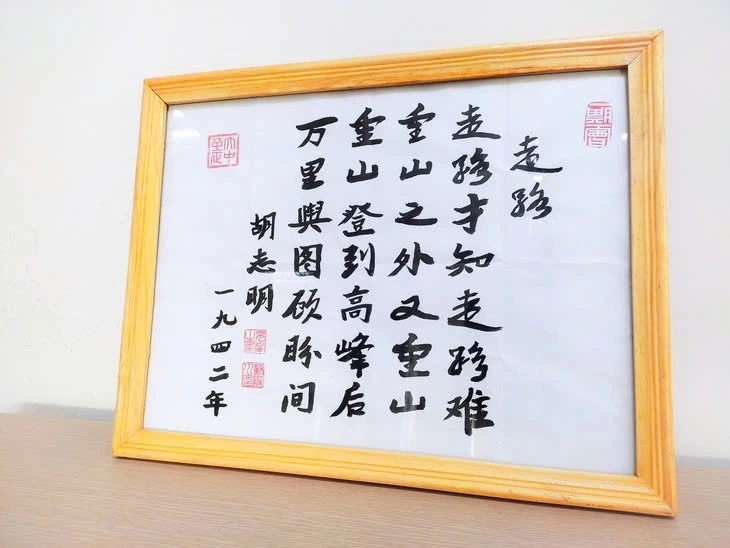 走路
走路才知走路难
重山之外又重山
重山登到高峰后
万里舆图顾盼间
胡志明
一九四二年